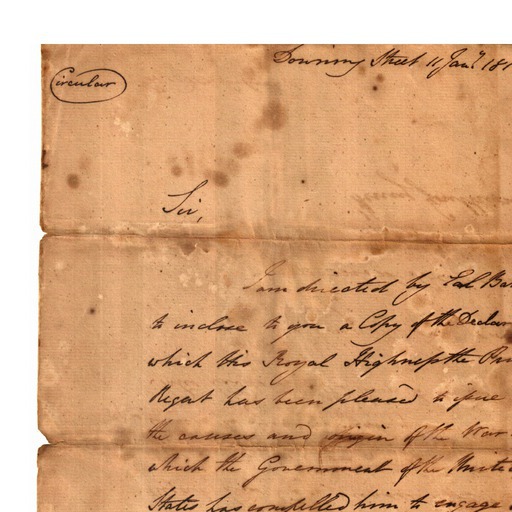 Downing Street 11 Jany. 181
Circular
Sir,
I am directed by Earl Ba
to inclose to you a Copy of the Declar
which His Royal Highness the Prin
Regent has been pleased to issue
the causes and origin of the War
which the Government of the Unite
States has compelled him to engage